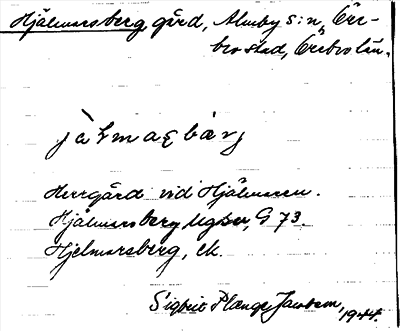 Hjälmarsberg, gård, Almby s:n, Öre-
bro stad, Örebro län.
jälmaʂbärj
Herrgård vid Hjälmaren.
Hjälmarsberg Ugser, G 73.
Hjelmarsberg, ek.
Sigbrit Plænge Jacobson, 1944.